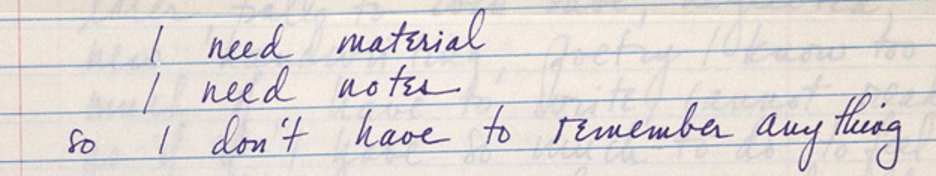 I need material
I need notes
so I don't have to remember anything